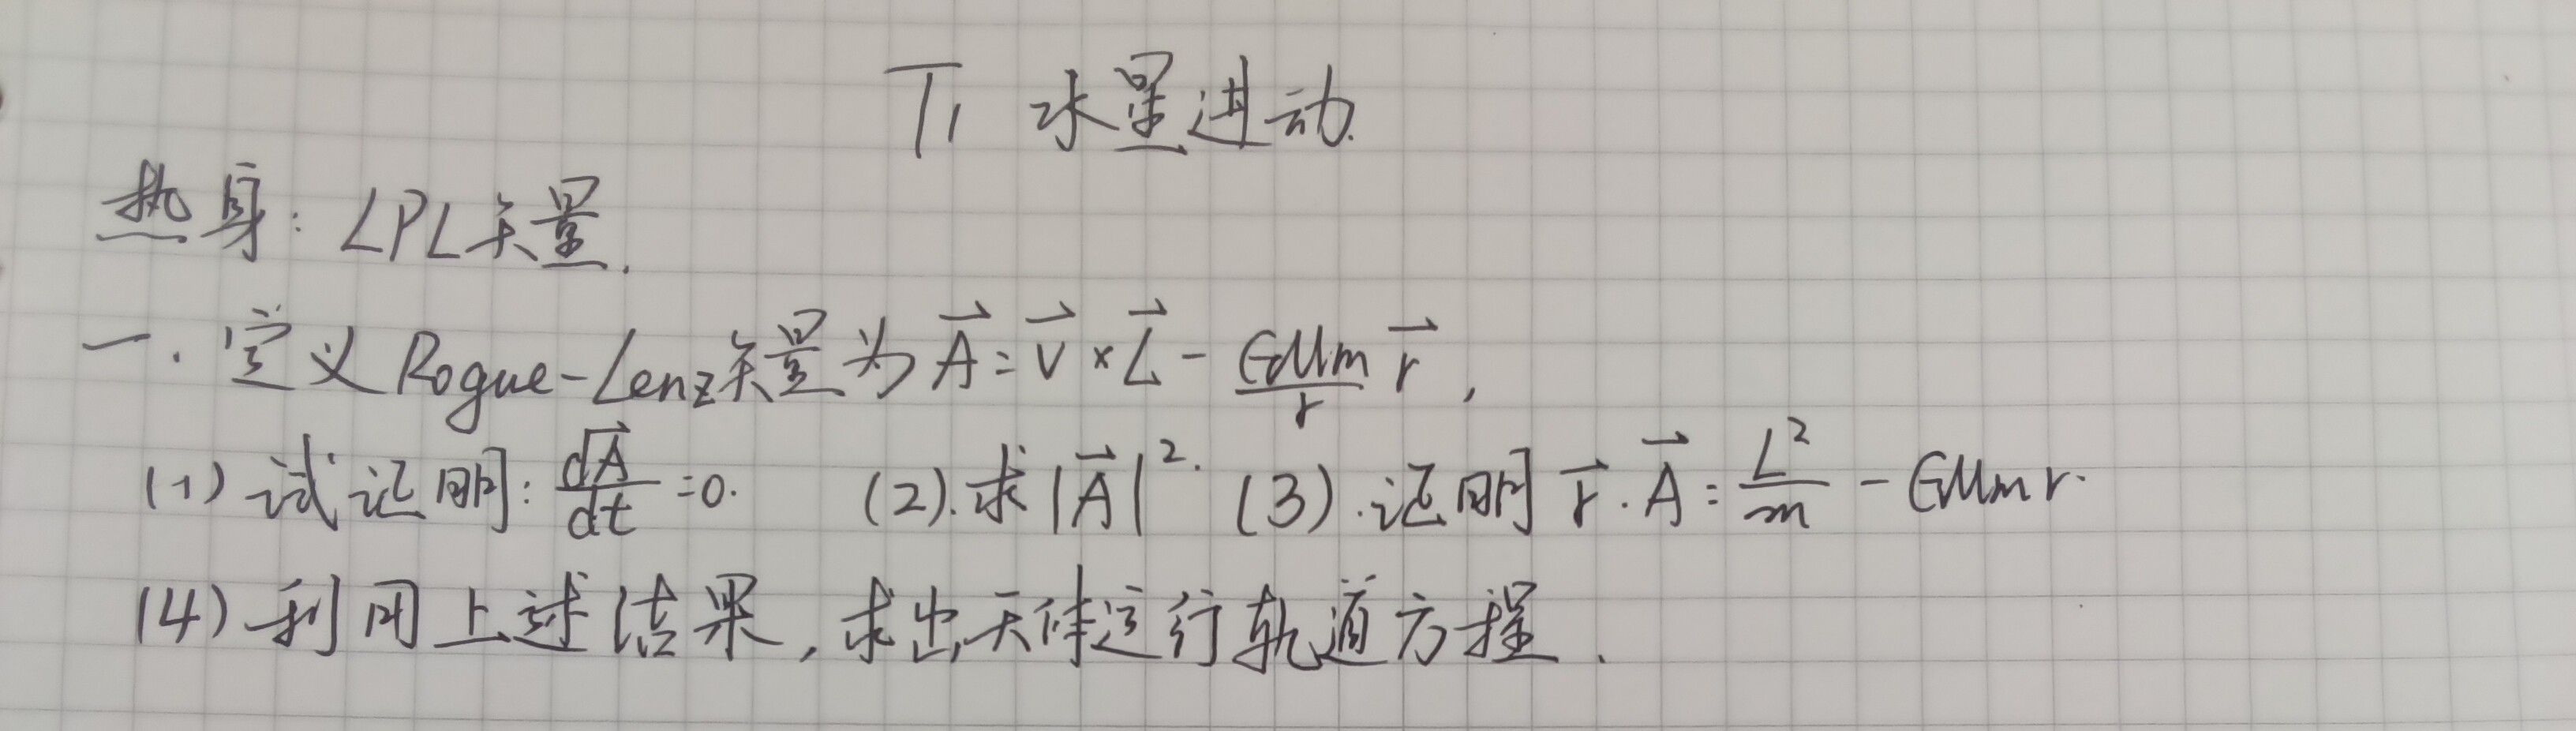 T1 水星进动.
热身: LPL矢量.
一. 定义Rogue-Lenz矢量为 $\vec{A}=\vec{v}\times\vec{L}-\frac{GMm}{r}\vec{r}$,
(1) 试证明: $\frac{d\vec{A}}{dt}=0.$ (2). 求 $|\vec{A}|^2.$ (3). 证明 $\vec{r}\cdot\vec{A}=\frac{L^2}{m}-GMmr.$
(4) 利用上述结果, 求出天体运行轨道方程.